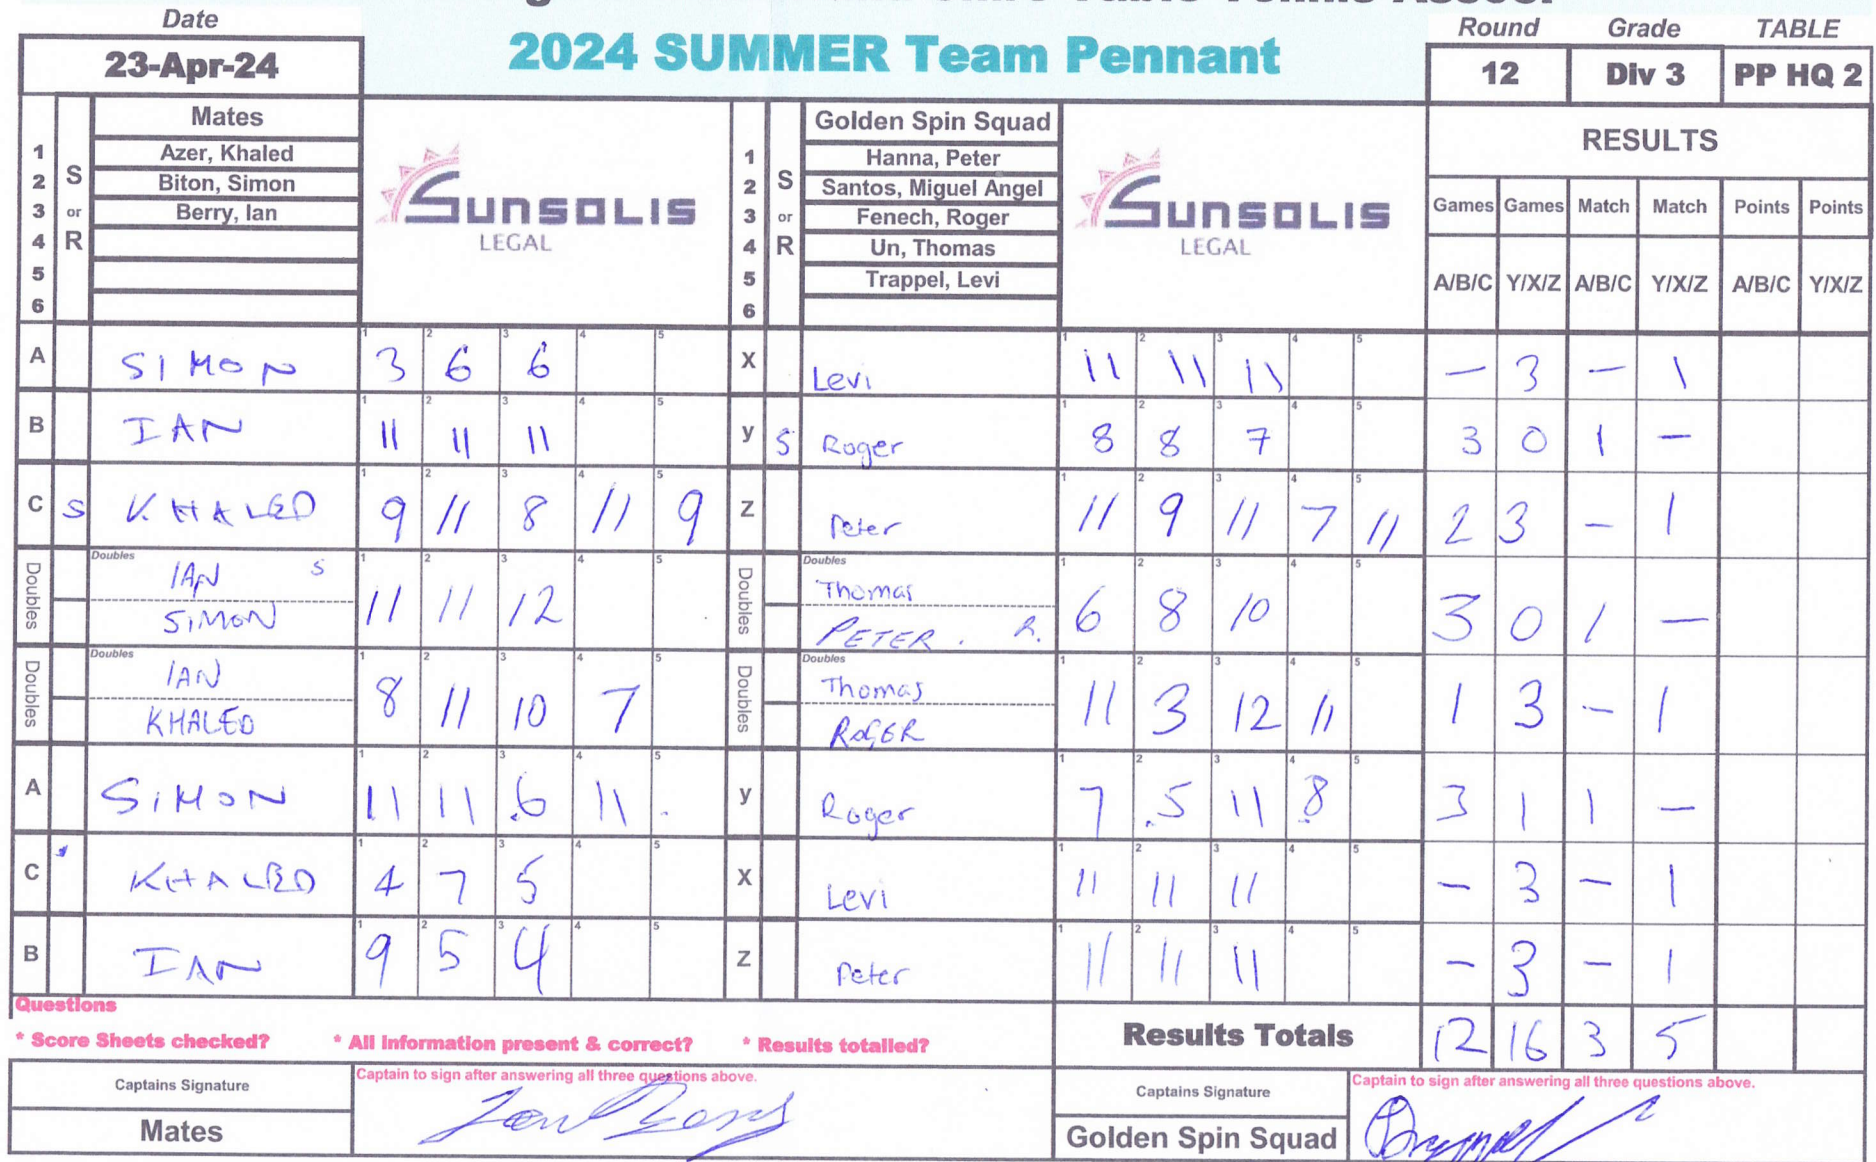 Date
23-Apr-24
2024 SUMMER Team Pennant
Round Grade TABLE
12 Div 3 PP HQ 2
Mates
1 Azer, Khaled
2 Biton, Simon
3 Berry, Ian
4
5
6
S or R
SUNSOLIS
LEGAL
Golden Spin Squad
1 Hanna, Peter
2 Santos, Miguel Angel
3 Fenech, Roger
4 Un, Thomas
5 Trappel, Levi
6
S or R
SUNSOLIS
LEGAL
RESULTS
Games Games Match Match Points Points
A/B/C Y/X/Z A/B/C Y/X/Z A/B/C Y/X/Z
A SIMON 3 6 6 X Levi 11 11 11 – 3 – 1
B IAN 11 11 11 y S Roger 8 8 7 3 0 1 –
C S KHALED 9 11 8 11 9 Z Peter 11 9 11 7 11 2 3 – 1
Doubles IAN S SIMON 11 11 12 Doubles Thomas PETER . R. 6 8 10 3 0 1 –
Doubles IAN KHALED 8 11 10 7 Doubles Thomas ROGER 11 3 12 11 1 3 – 1
A SIMON 11 11 6 11 y Roger 7 5 11 8 3 1 1 –
C KHALED 4 7 5 X Levi 11 11 11 – 3 – 1
B IAN 9 5 4 Z Peter 11 11 11 – 3 – 1
Questions
* Score Sheets checked? * All Information present & correct? * Results totalled?
Results Totals 12 16 3 5
Captains Signature
Captain to sign after answering all three questions above.
Mates
Captains Signature
Captain to sign after answering all three questions above.
Golden Spin Squad